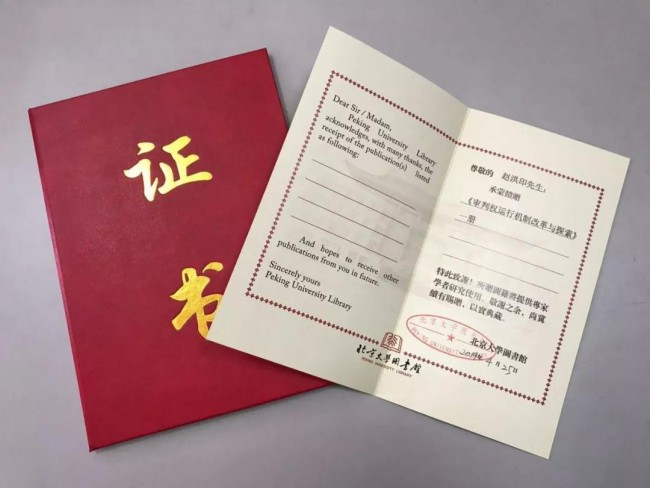 证
书
Dear Sir / Madam,
Peking University Library
acknowledges, with many thanks, the
receipt of the publication(s) listed
as following:
And hopes to receive other
publications from you in future.
Sincerely yours
Peking University Library
北京大學圖書館
PEKING UNIVERSITY LIBRARY
尊敬的 赵洪印先生：
承蒙惜赠
《审判权运行机制改革与探索》
一册
特此致謝！所贈圖籍將提供專家
學者研究使用。敬謝之余，尚冀
續有賜贈，以實典藏。
北京大學圖書館